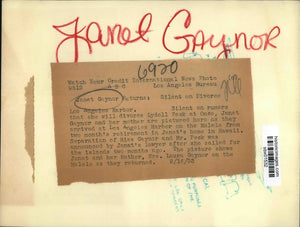 Janet Gaynor
6920
Watch Your Credit International News Photo
Los Angeles Bureau
Janet Gaynor Returns: Silent on Divorce
Los Angeles Harbor. Silent on rumors
that she will divorce Lydell Peck at once, Janet
Gaynor and her mother are pictured here as they
arrived at Los Angeles Harbor on the Malolo from
two month's retirement in Janet's home in Hawaii.
Separation of Miss Gaynor and Mr. Peck was
announced by Janet's lawyer after she sailed for
the islands two months ago. The picture shows
Janet and her Mother, Mrs. Laura Gaynor on the
Malolo as they returned.